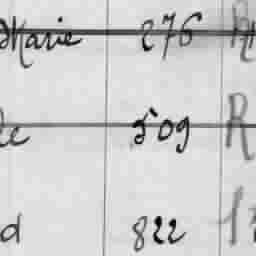 Marie 276 R
e 509 R
d 822